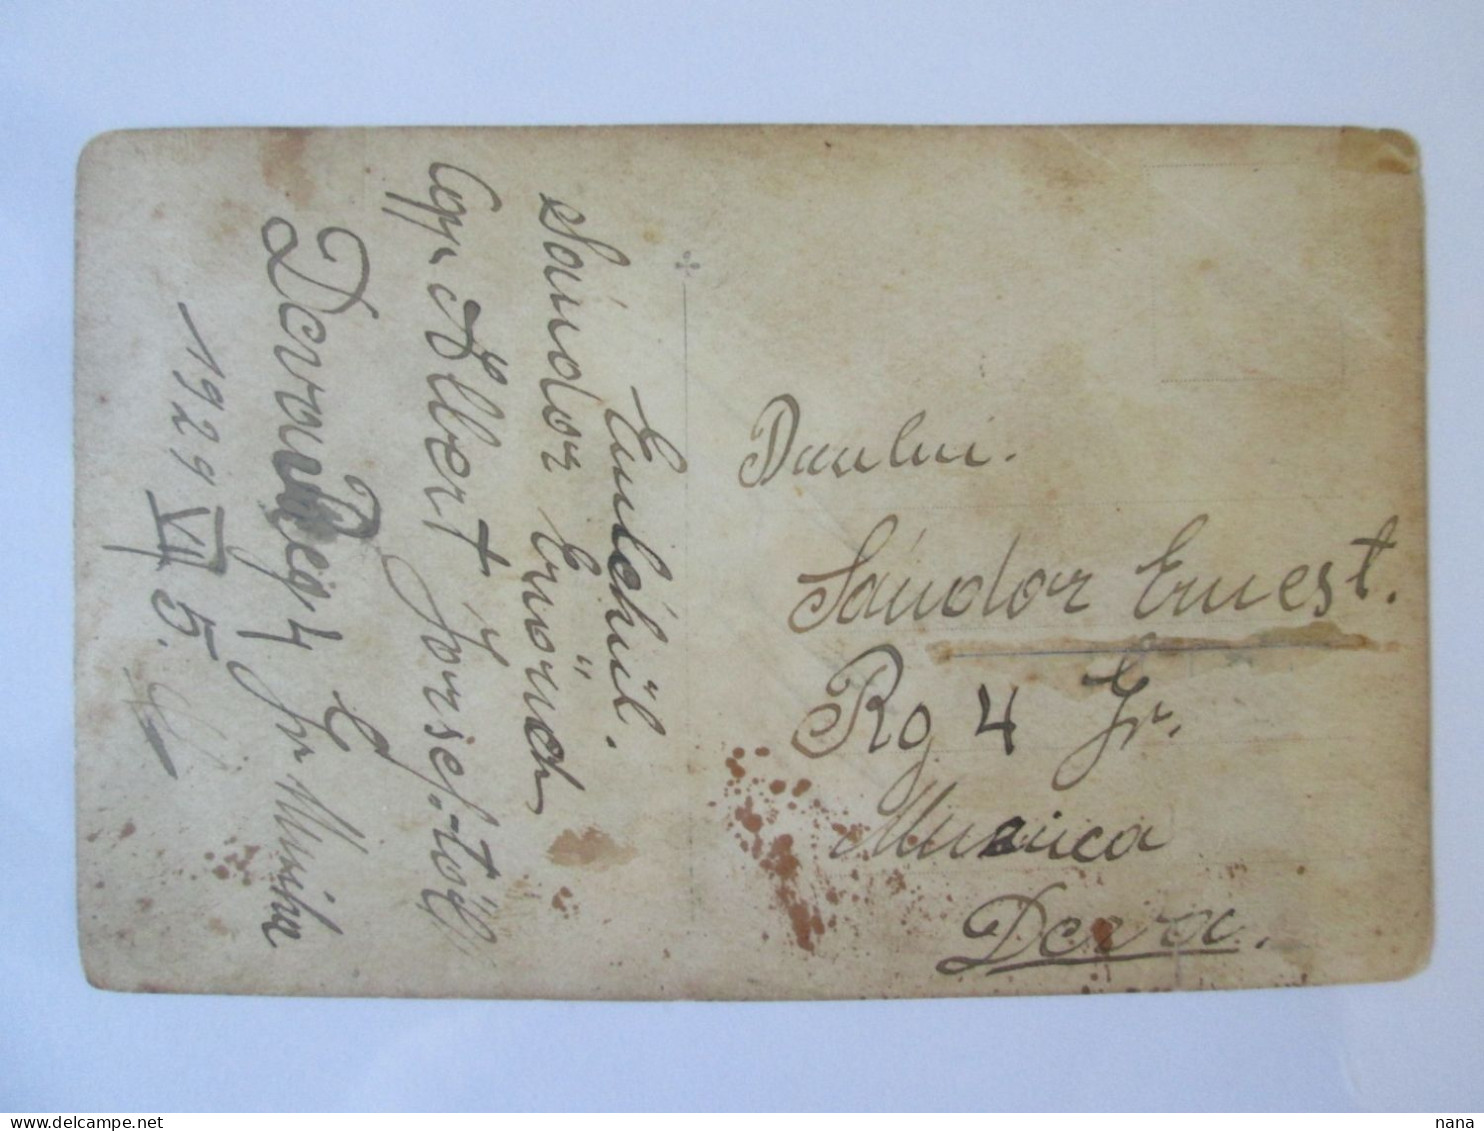 Emlékül.
Sándor Ernőnek
Cpp Albert József-től
Deva Reg 4 Gr Musika
1929 VII 5.
Domlui.
Sándor Ernest.
Rg 4 Gr.
Musica
Deva.
nana